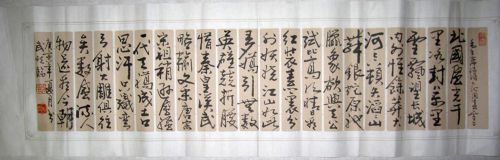 北國風光千
里冰封萬里
雪飄望長城
内外惟餘莽莽大
河上下頓失滔滔山
舞銀蛇原馳
臘象欲與天公
試比高須晴日看
紅裝素裹分
外妖嬈江山如此
多嬌引無數
英雄競折腰
惜秦皇漢武
略輸文采唐宗
宋祖稍遜風騷
一代天驕成吉
思汗只識彎
弓射大雕俱往
矣數風流人
物還看今朝